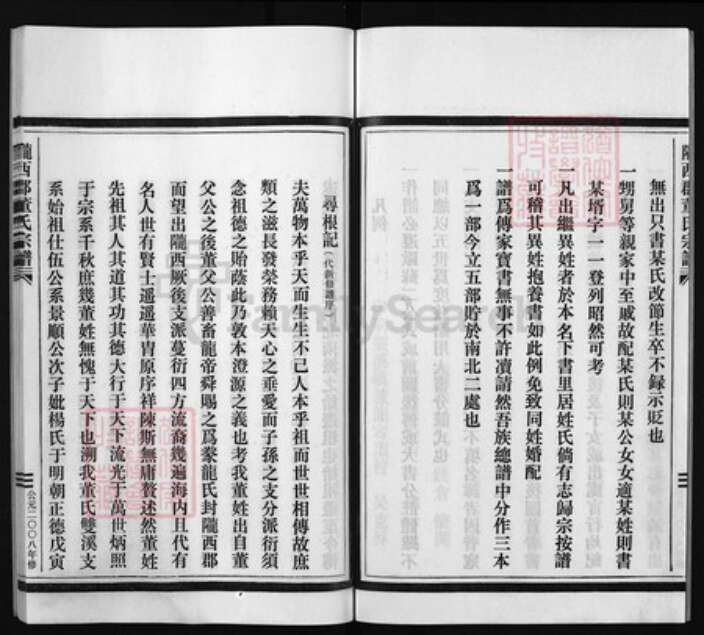 隴西郡董氏宗譜
無出只書某氏改節生卒不錄示貶也
一甥舅等親家中至戚故配某氏則某公女女適某姓則書
某壻字一一登列昭然可考
一凡出繼異姓者於本名下書里居姓氏倘有志歸宗按譜
可稽其異姓抱養書如此例免致同姓婚配
一譜爲傳家寶書無事不許瀆請然吾族總譜中分作三本
爲一部今立五部貯於南北二處也
尋根記(代新修譜序)
夫萬物本乎天而生生不已人本乎祖而世世相傳故庶
類之滋長發榮務賴天心之垂愛而子孫之支分派衍須
念祖德之貽蔭此乃敦本澄源之義也考我董姓出自董
父公之後董父公善畜龍帝舜賜之爲豢龍氏封隴西郡
而望出隴西厥後支派蔓衍四方流裔幾遍海內且代有
名人世有賢士遥遥華胄原序祥陳斯無庸贅述然董姓
先祖其人其道其功其德大行于天下流光于萬世炳照
于宗系千秋庶幾董姓無愧于天下也溯我董氏雙溪支
系始祖仕伍公系景順公次子妣楊氏于明朝正德戊寅
隴西郡董氏宗譜
公元二〇〇八年修
FamilySearch